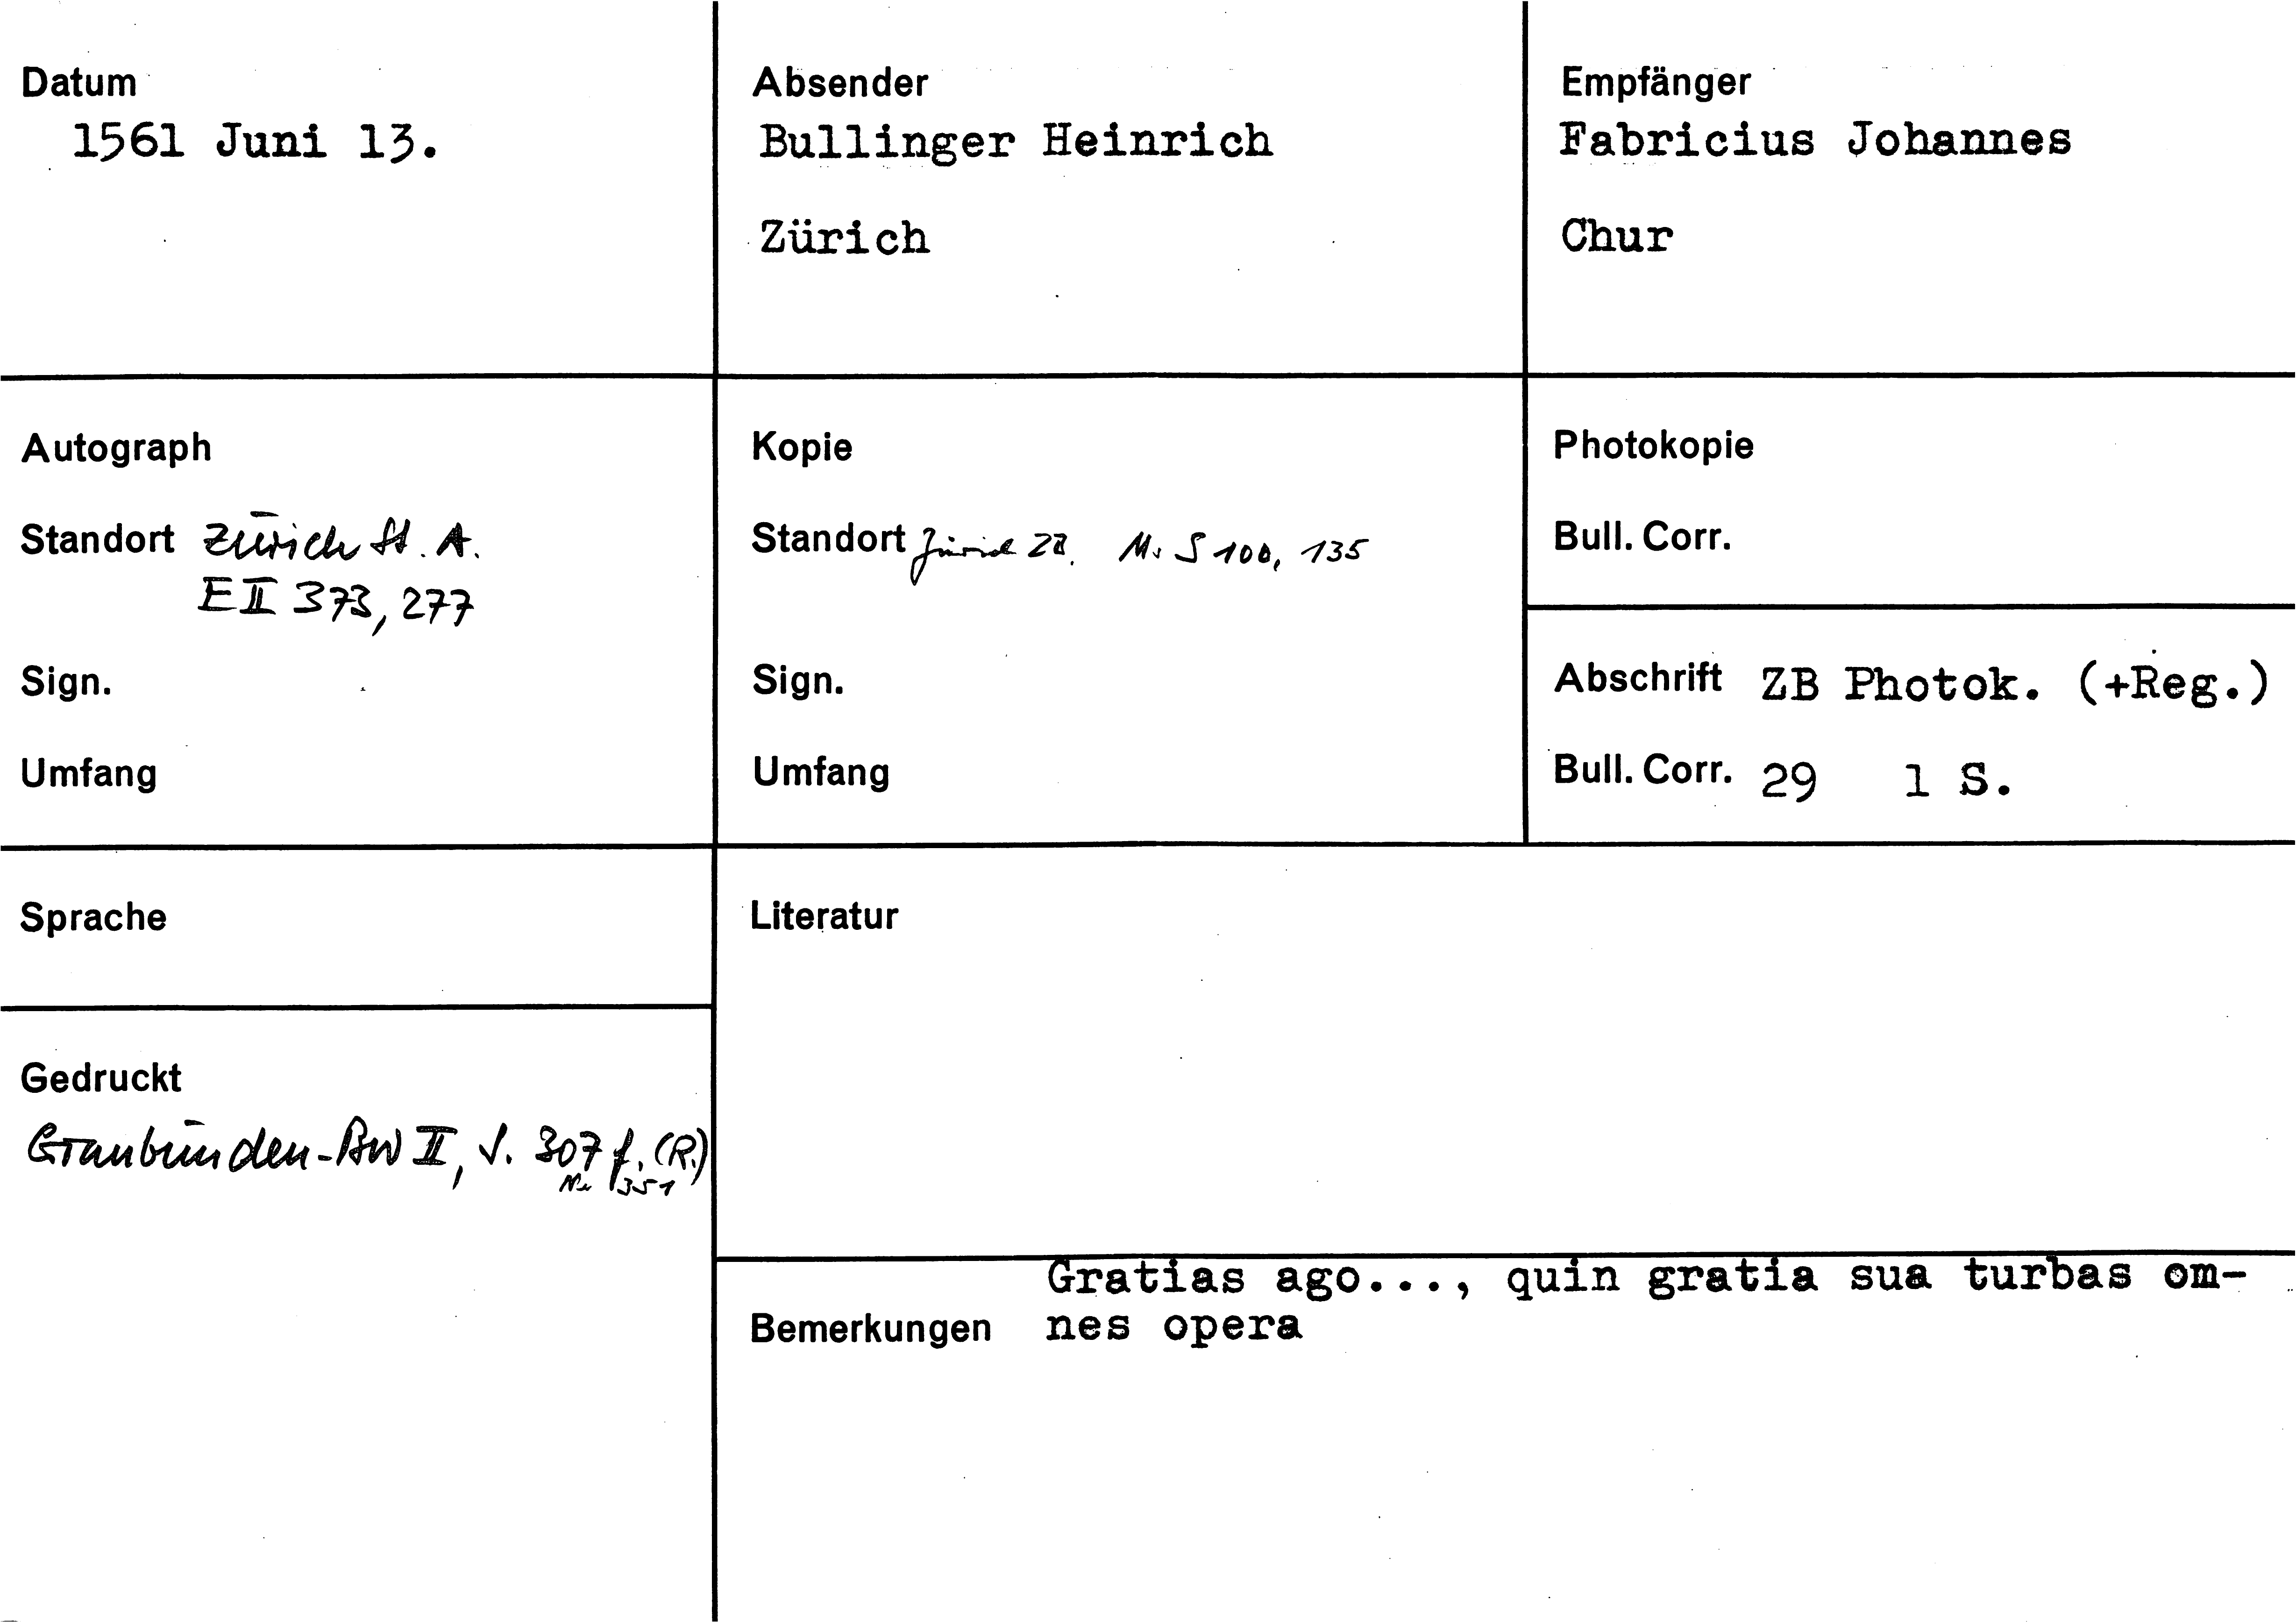 Datum
1561 Juni 13.
Absender
Bullinger Heinrich
Zürich
Empfänger
Fabricius Johannes
Chur
Autograph
Standort Zürich St. A.
E II 373, 277
Sign.
Umfang
Kopie
Standort Zürich ZB. Ms S 100, 135
Sign.
Umfang
Photokopie
Bull. Corr.
Abschrift ZB Photok. (+Reg.)
Bull. Corr. 29 1 S.
Sprache
Gedruckt
Graubünden-BW II, S. 307 f. (R.)
Nr 351
Literatur
Gratias ago..., quin gratia sua turbas om-
Bemerkungen nes opera